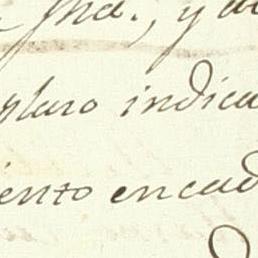 Sha., y
plaro indica
iento encad